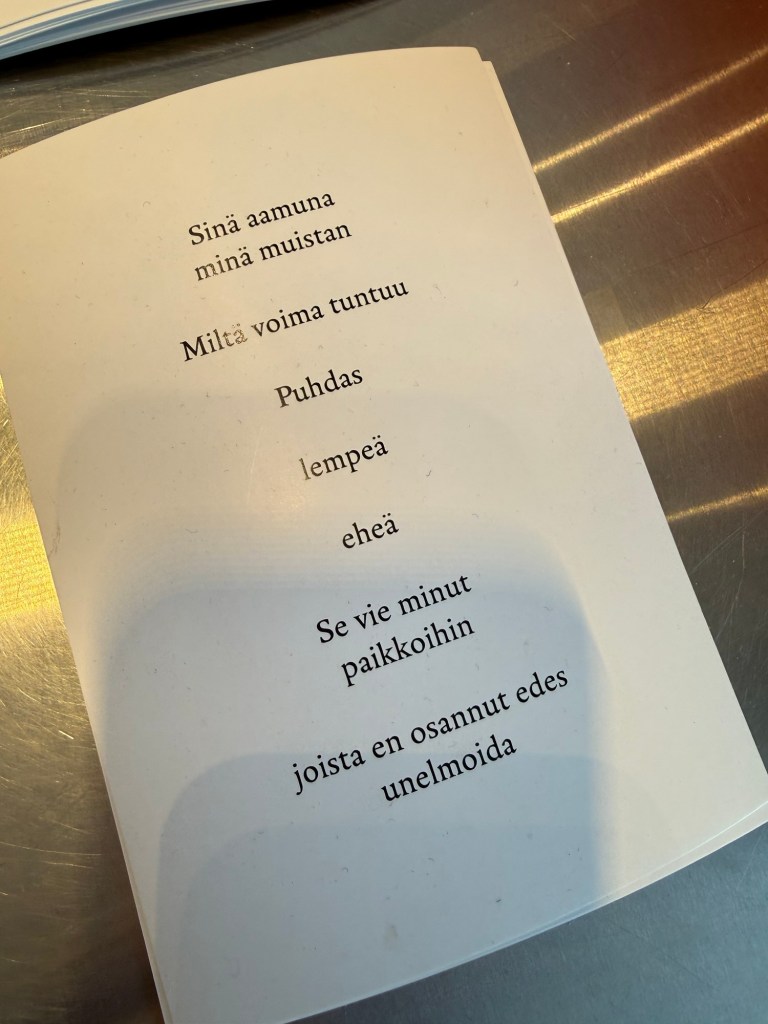 Sinä aamuna
minä muistan
Miltä voima tuntuu
Puhdas
lempeä
eheä
Se vie minut
paikkoihin
joista en osannut edes
unelmoida